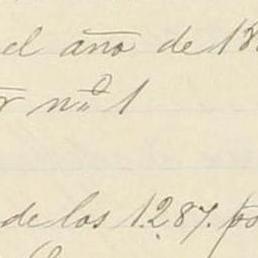 el año de 18
r nº 1
de los 1.287. po